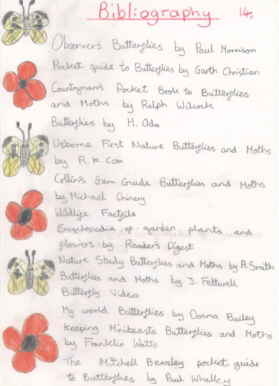 Bibliography 14
Observers Butterflies by Paul Morrison
Pocket guide to Butterflies by Garth Christian
Countryman's Pocket Book to Butterflies
and Moths by Ralph
Butterflies by H.
Usborne First Nature Butterflies and Moths
by R. K. Cox
Collins Gem Guide Butterflies and Moths
by Michael Chinery
Wildlife Factfile
Encyclopedia of garden plants and
flowers by Readers Digest
Nature Study Butterflies and Moths by A. Smith
Butterflies and Moths by J. Feltwell
Butterfly Video
My world Butterflies by Donna Bailey
Keeping Minibeasts Butterflies and Moths
by Franklin Watts
The Mitchell Beazley pocket guide
to Butterflies by Paul Whalley